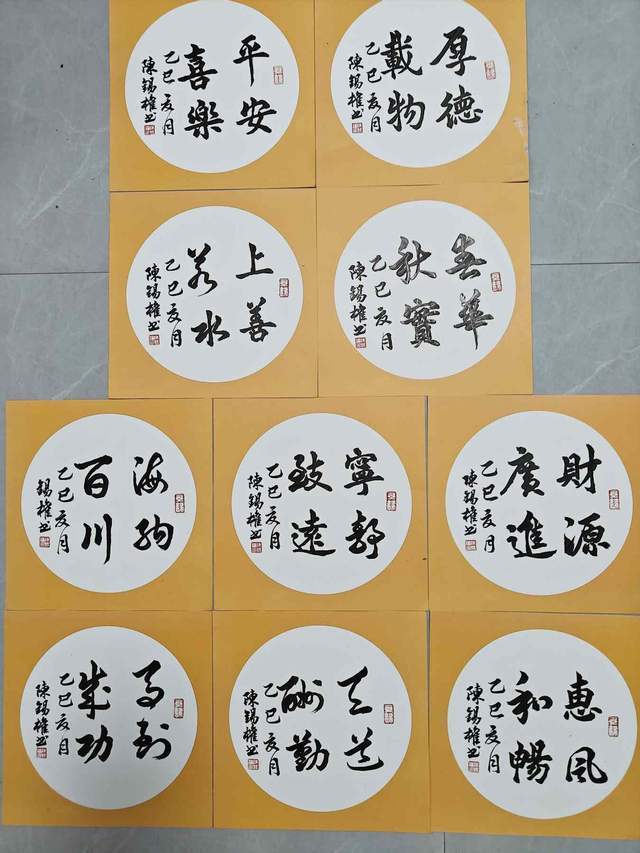 平安
喜樂
乙巳亥月
陳錫權书
厚德
載物
乙巳亥月
陳錫權书
上善
若水
乙巳亥月
陳錫權书
春華
秋實
乙巳亥月
陳錫權书
海納
百川
乙巳亥月
錫權书
寧靜
致遠
乙巳亥月
陳錫權书
財源
廣進
乙巳亥月
陳錫權书
馬到
成功
乙巳亥月
陳錫權书
天道
酬勤
乙巳亥月
陳錫權书
惠風
和暢
乙巳亥月
陳錫權书